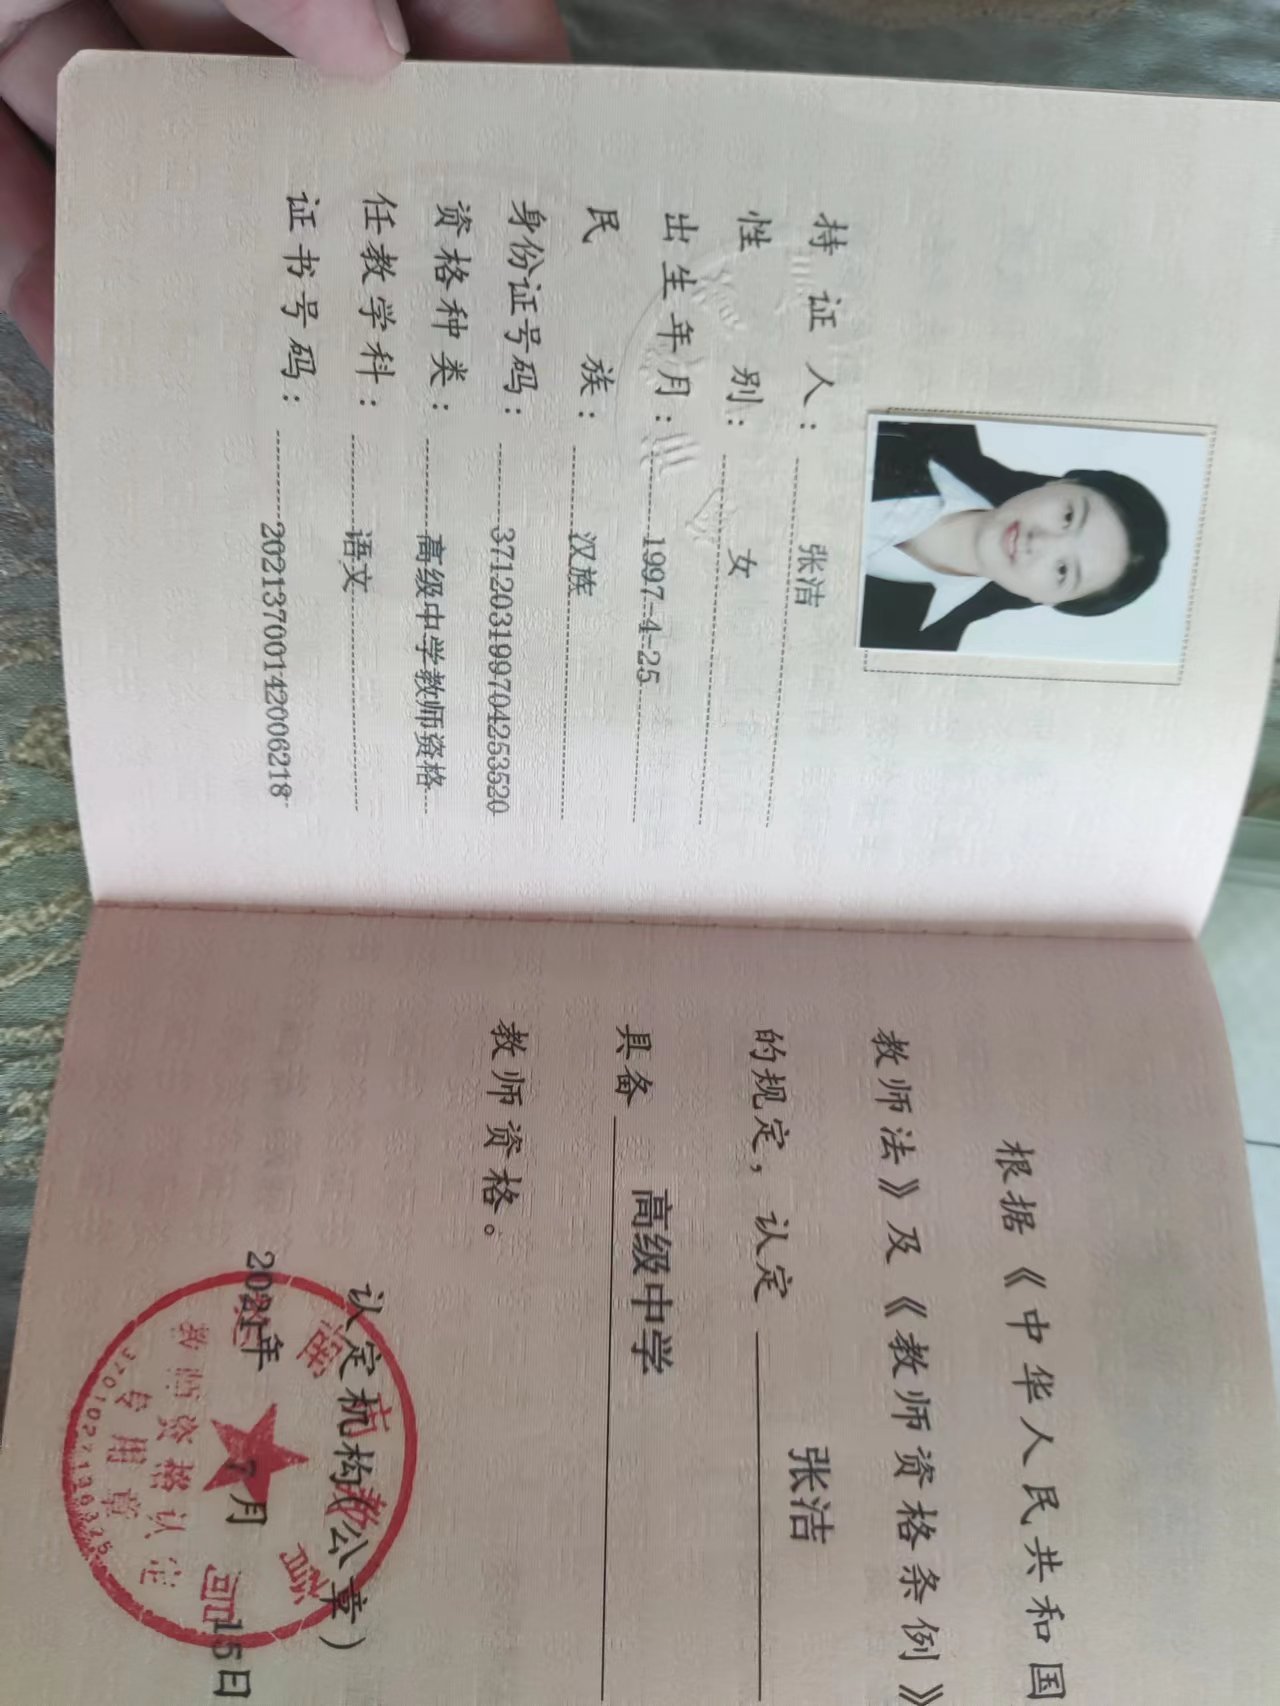 持证人：张洁
性别：女
出生年月：1997-4-25
民族：汉族
身份证号码：371203199704253520
资格种类：高级中学教师资格
任教学科：语文
证书号码：20213700142006218
根据《中华人民共和国
教师法》及《教师资格条例》
的规定，认定 张洁
具备 高级中学
教师资格。
认定机构（公章）
2021年 7月 15日
教师资格认定
专用章